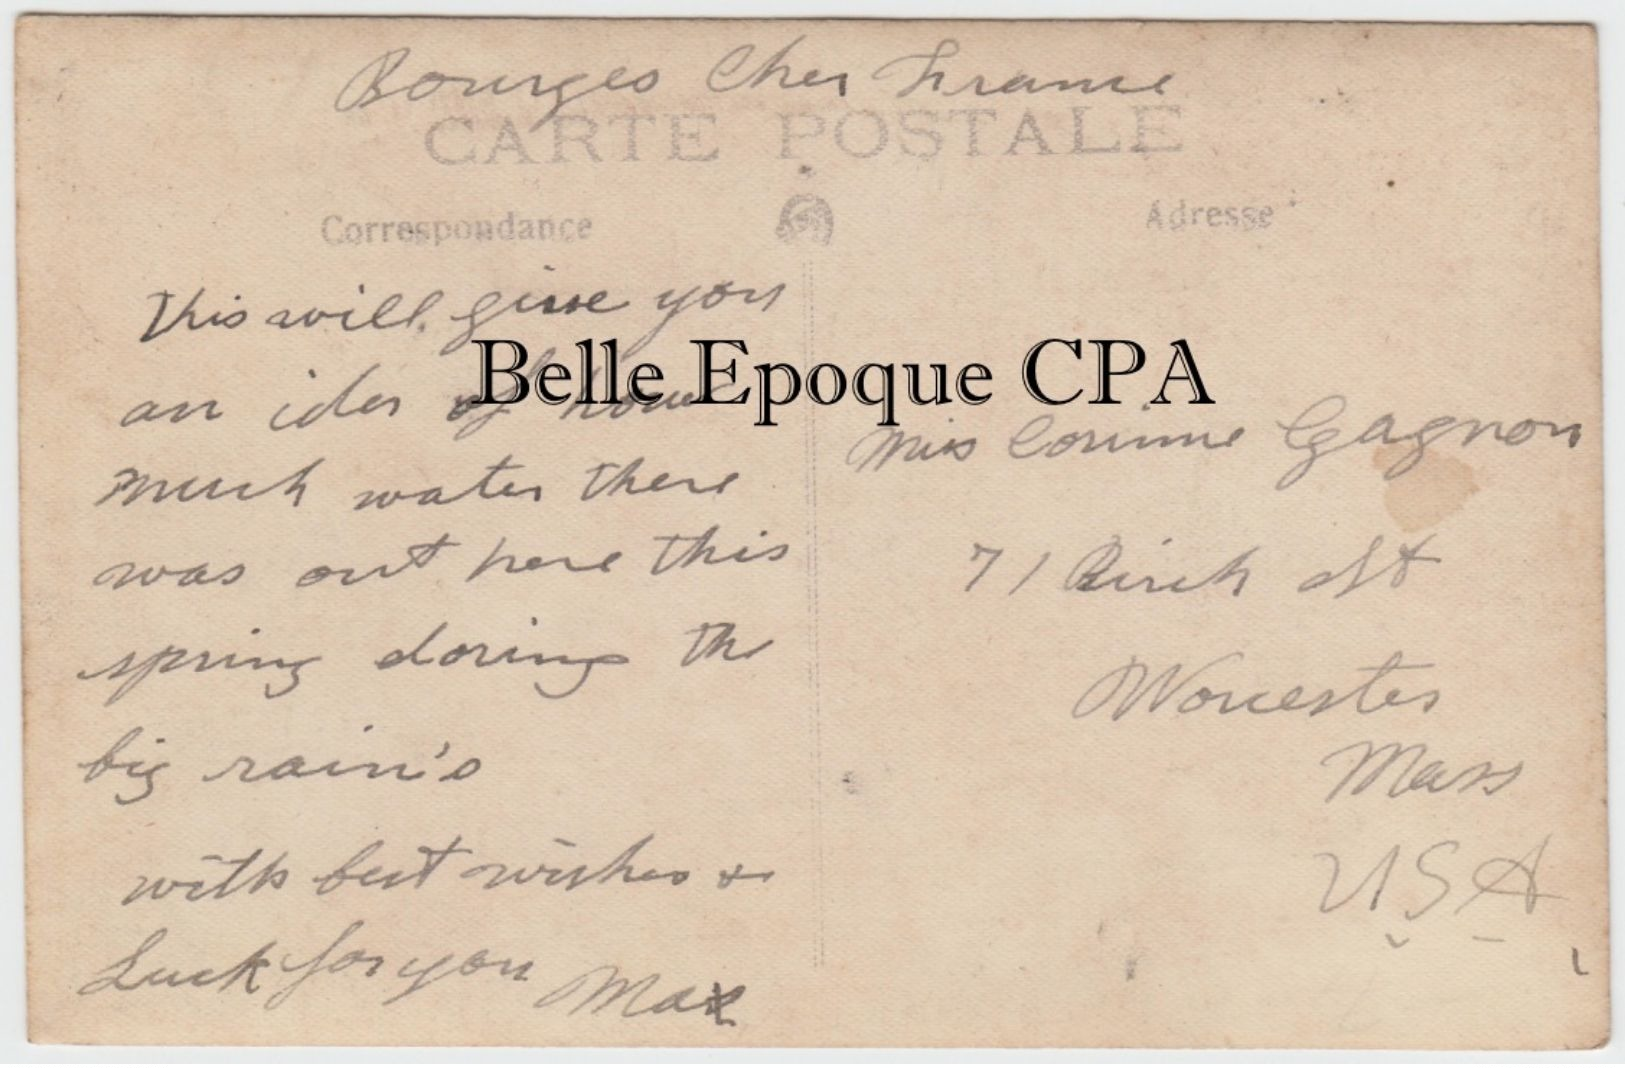 Bourges Cher France
CARTE POSTALE
Correspondance
Adresse
This will give you
an ider of how
much water there
was out here this
spring doring the
big rain's
with best wishes &
Luck for you Max
Belle Epoque CPA
Miss Corinne Gagnon
71 Birch St
Worcester
Mass
USA